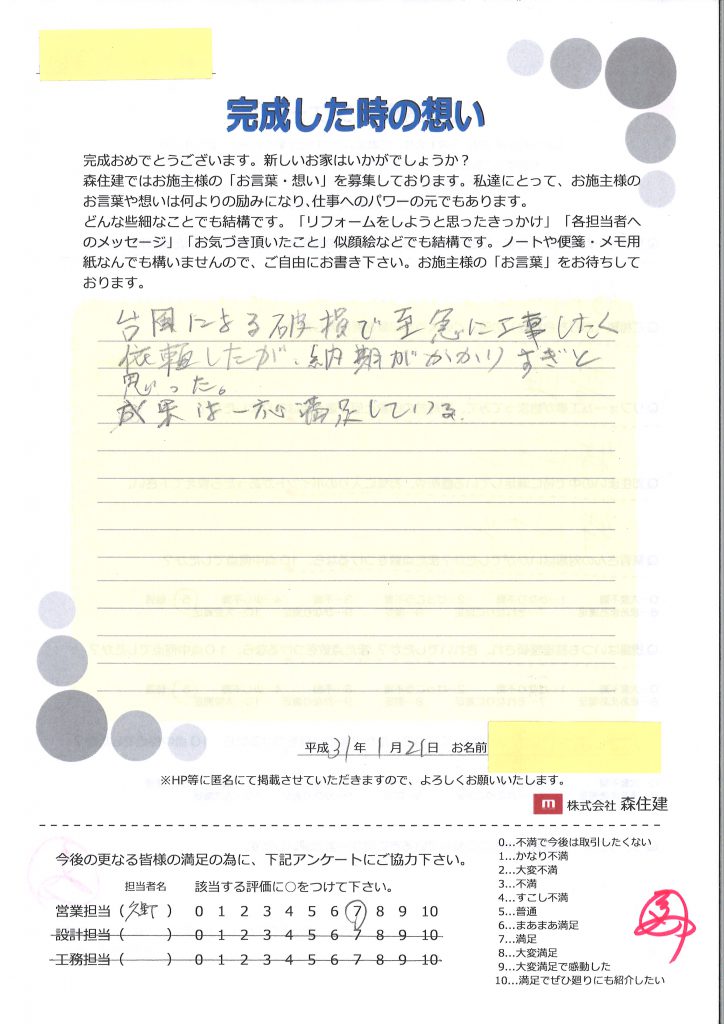 完成した時の想い
完成おめでとうございます。新しいお家はいかがでしょうか？
森住建ではお施主様の「お言葉・想い」を募集しております。私達にとって、お施主様の
お言葉や想いは何よりの励みになり、仕事へのパワーの元でもあります。
どんな些細なことでも結構です。「リフォームをしようと思ったきっかけ」「各担当者へ
のメッセージ」「お気づき頂いたこと」似顔絵などでも結構です。ノートや便箋・メモ用
紙なんでも構いませんので、ご自由にお書き下さい。お施主様の「お言葉」をお待ちして
おります。
台風による破損で至急に工事したく
依頼したが、納期がかかりすぎと
思った。
成果は一応満足している.
平成31年1月21日 お名前
※HP等に匿名にて掲載させていただきますので、よろしくお願いいたします。
m 株式会社 森住建
今後の更なる皆様の満足の為に、下記アンケートにご協力下さい。
担当者名 該当する評価に○をつけて下さい。
営業担当（ ） 0 1 2 3 4 5 6 7 8 9 10
設計担当（ ） 0 1 2 3 4 5 6 7 8 9 10
工務担当（ ） 0 1 2 3 4 5 6 7 8 9 10
0…不満で今後は取引したくない
1…かなり不満
2…大変不満
3…不満
4…すこし不満
5…普通
6…まあまあ満足
7…満足
8…大変満足
9…大変満足で感動した
10…満足でぜひ廻りにも紹介したい